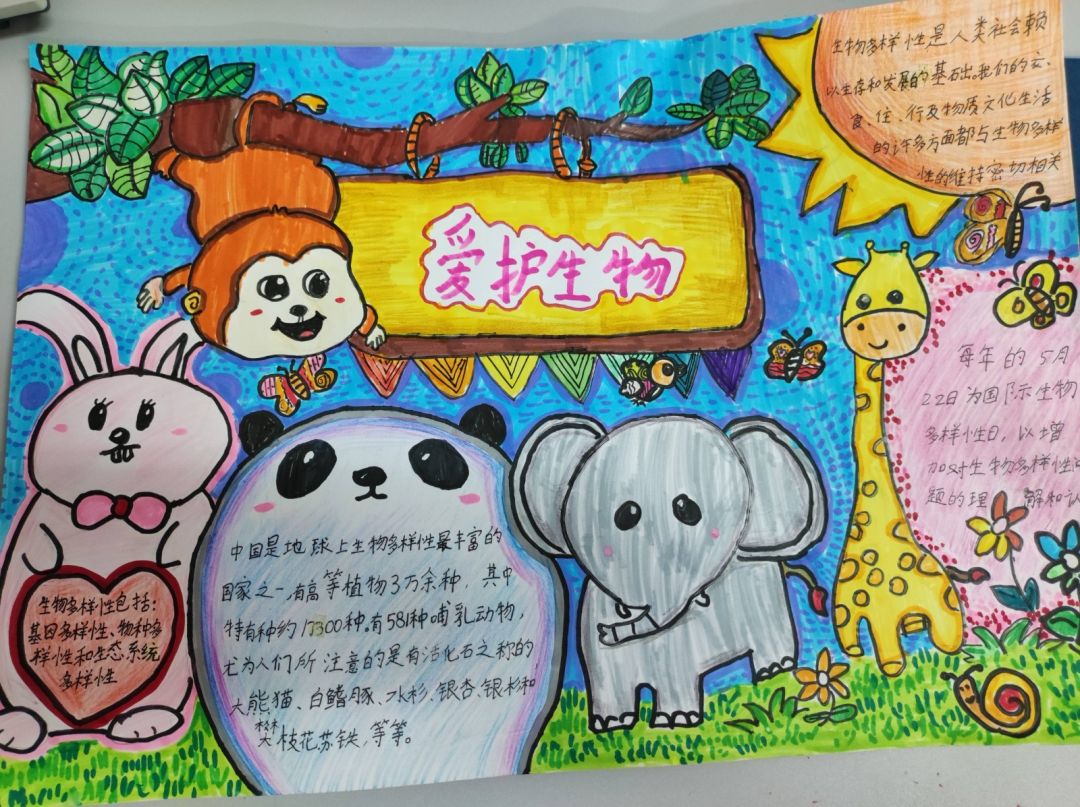 爱护生物
生物多样性是人类社会赖
以生存和发展的基石出。我们的衣、
食、住、行及物质文化生活
的许多方面都与生物多样
性的维持密切相关
每年的5月
22日为国际生物
多样性日，以增
加对生物多样性问
题的理解和认
中国是地球上生物多样性最丰富的
国家之一，有高等植物3万余种，其中
特有种约17300种。有581种哺乳动物，
尤为人们所注意的是有活化石之称的
大熊猫、白鳍豚、水杉、银杏、银杉和
攀枝花苏铁，等等。
生物多样性包括：
基因多样性、物种多
样性和生态系统
多样性